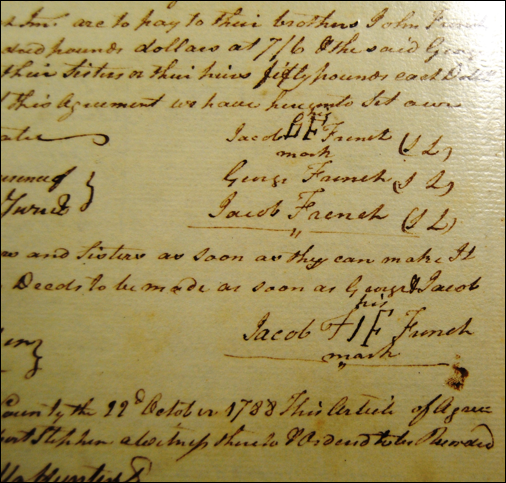 are to pay to their brothers John French
pounds dollars at 7/6 & the said Geo
their Sisters or their heirs fifty pounds each
this Agreement we have hereunto Set our
his
Jacob F French (S L)
mark
George French (S L)
Jacob French (S L)
and Sisters as soon as they can make It
Deeds to be made as soon as George & Jacob
his
Jacob IF French
mark
County the 22d October 1788 This Article of Agree
Stephen a witness thereto & Ordered to be Recorded